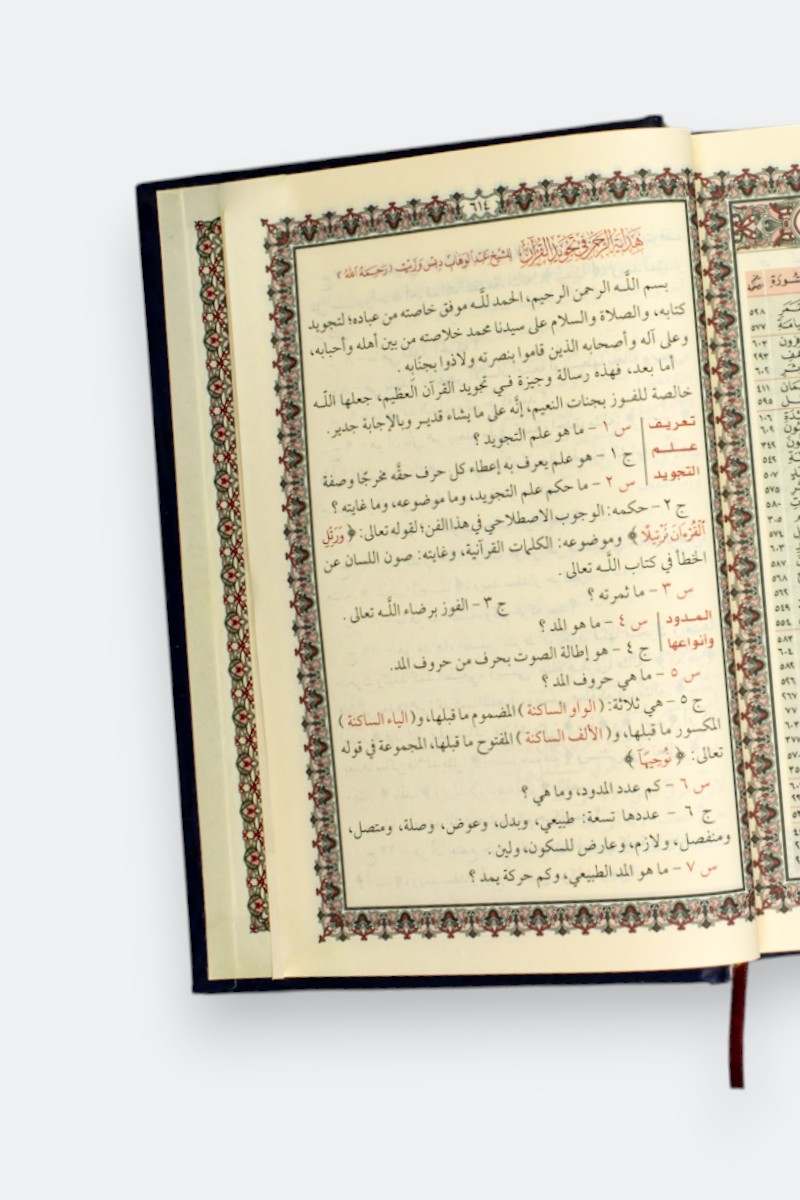 ٦١٤
هداية الرحمن في تجويد القرآن للشيخ عبد الوهاب دبس وزيت (رحمه الله)
بسم اللَّـه الرحمن الرحيم، الحمد للَّـه موفق خاصته من عباده؛ لتجويد
كتابه، والصلاة والسلام على سيدنا محمد خلاصته من بين أهله وأحبابه،
وعلى آله وأصحابه الذين قاموا بنصرته ولاذوا بجنَابه .
أما بعد، فهذه رسالة وجيزة في تجويد القرآن العظيم، جعلها اللَّـه
خالصة للفـوز بجنات النعيم، إنَّه على ما يشاء قديـر وبالإجابة جدير.
تعريف علـم التجويد
س ١ – ما هو علم التجويد ؟
ج ١ – هو علم يعرف به إعطاء كل حرف حقَّه مخرجًا وصفة
س ٢ – ما حكم علم التجويد، وما موضوعه، وما غايته ؟
ج ٢ – حكمه: الوجوب الاصطلاحي في هذا الفن؛ لقوله تعالى: ﴿ وَرَتِّلِ
ٱلْقُرْءَانَ تَرْتِيلًا ﴾ وموضوعه: الكلمات القرآنية، وغايته: صون اللسان عن
الخطأ في كتاب اللَّـه تعالى .
س ٣ – ما ثمرته ؟ ج ٣ – الفوز برضاء اللَّـه تعالى .
المـدود وأنواعها
س ٤ – ما هو المد ؟
ج ٤ – هو إطالة الصوت بحرف من حروف المد.
س ٥ – ما هي حروف المد ؟
ج ٥ – هي ثلاثة: ( الواو الساكنة ) المضموم ما قبلها، و( الياء الساكنة )
المكسور ما قبلها، و( الألف الساكنة ) المفتوح ما قبلها، المجموعة في قوله
تعالى: ﴿ نُوحِيهَآ ﴾
س ٦ – كم عدد المدود، وما هي ؟
ج ٦ – عددها تسعة: طبيعي، وبدل، وعوض، وصلة، ومتصل،
ومنفصل، ولازم، وعارض للسكون، ولين .
س ٧ – ما هو المد الطبيعي، وكم حركة يمد ؟